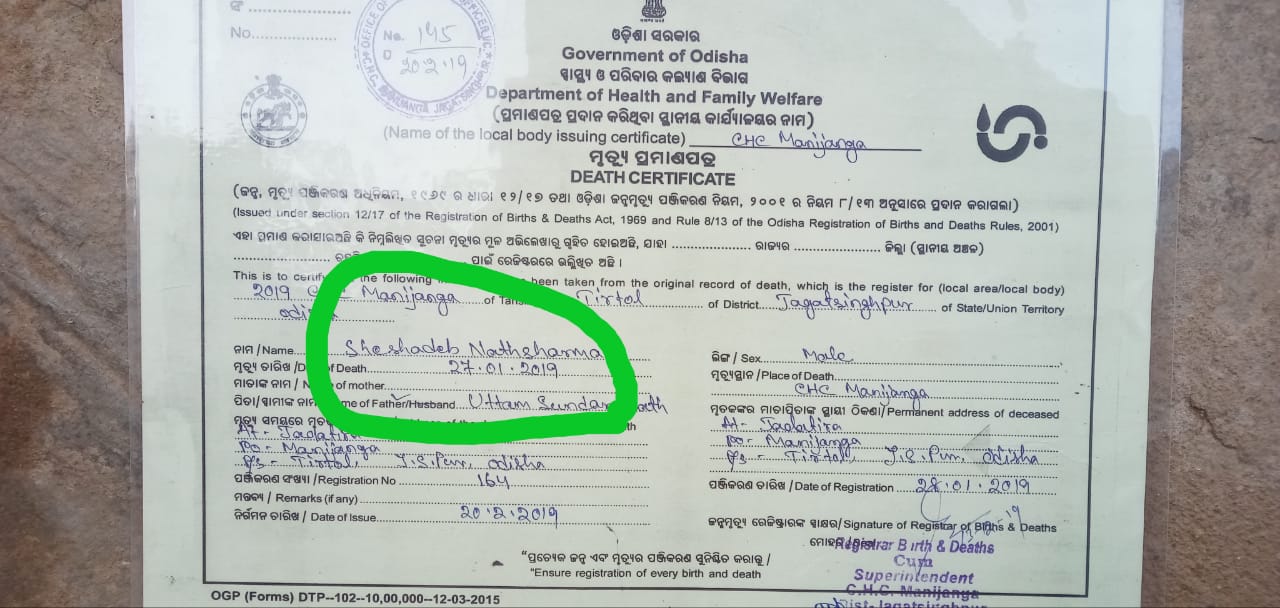 ଙ୍କ ....................
No....................
OFFICE OF
C.H.C. MANIJANGA JAGATSINGHPUR
No. 145
D 20.2.19
ଓଡ଼ିଶା ସରକାର
Government of Odisha
ସ୍ୱାସ୍ଥ୍ୟ ଓ ପରିବାର କଲ୍ୟାଣ ବିଭାଗ
Department of Health and Family Welfare
(ପ୍ରମାଣପତ୍ର ପ୍ରଦାନ କରିଥିବା ସ୍ଥାନୀୟ କାର୍ଯ୍ୟାଳୟର ନାମ)
(Name of the local body issuing certificate) CHC Manijanga
ମୃତ୍ୟୁ ପ୍ରମାଣପତ୍ର
DEATH CERTIFICATE
(ଜନ୍ମ, ମୃତ୍ୟୁ ପଞ୍ଜିକରଣ ଅଧିନିୟମ, ୧୯୬୯ ର ଧାରା ୧୨/୧୭ ତଥା ଓଡ଼ିଶା ଜନ୍ମମୃତ୍ୟୁ ପଞ୍ଜିକରଣ ନିୟମ, ୨୦୦୧ ର ନିୟମ ୮/୧୩ ଅନୁସାରେ ପ୍ରଦାନ କରାଗଲା)
(Issued under section 12/17 of the Registration of Births & Deaths Act, 1969 and Rule 8/13 of the Odisha Registration of Births and Deaths Rules, 2001)
ଏହା ପ୍ରମାଣ କରାଯାଉଅଛି କି ନିମ୍ନଲିଖିତ ସୂଚନା ମୃତ୍ୟୁର ମୂଳ ଅଭିଲେଖରୁ ଗୃହିତ ହୋଇଅଛି, ଯାହା .................... ରାଜ୍ୟର .................... ଜିଲ୍ଲା (ସ୍ଥାନୀୟ ଅଞ୍ଚଳ)
.................... ପାଇଁ ରେଜିଷ୍ଟରରେ ଉଲ୍ଲିଖିତ ଅଛି ।
This is to certify the following been taken from the original record of death, which is the register for (local area/local body)
2019 Manijanga of Tirtol of District Jagatsinghpur of State/Union Territory
odisha
ନାମ / Name Sheshadeb Nathsharma
ଲିଙ୍ଗ / Sex Male
ମୃତ୍ୟୁ ତାରିଖ / of Death 27.01.2019
ମୃତ୍ୟୁସ୍ଥାନ / Place of Death
CHC Manijanga
ମାତାଙ୍କ ନାମ / of mother
ପିତା/ସ୍ୱାମୀଙ୍କ ନାମ of Father/Husband Uttam Sundar
ମୃତକଙ୍କର ମାତାପିତାଙ୍କ ସ୍ଥାୟୀ ଠିକଣା / Permanent address of deceased
ମୃତ୍ୟୁ ସମୟରେ
At - Jadatira
Po - Manijanga
Ps - Tirtol, J.S.Pur, odisha
At - Jadatira
Po - Manijanga
Ps - Tirtol, J.S.Pur, odisha
ପଞ୍ଜିକରଣ ସଂଖ୍ୟା / Registration No 164
ପଞ୍ଜିକରଣ ତାରିଖ / Date of Registration 28.01.2019
ମନ୍ତବ୍ୟ / Remarks (if any)
ନିର୍ଗମନ ତାରିଖ / Date of Issue 20.2.2019
ଜନ୍ମମୃତ୍ୟୁ ରେଜିଷ୍ଟ୍ରାରଙ୍କ ସ୍ୱାକ୍ଷର/ Signature of Registrar of Births & Deaths
Registrar Birth & Deaths
Cum
Superintendent
C.H.C. Manijanga
Dist-Jagatsinghpur
"ପ୍ରତ୍ୟେକ ଜନ୍ମ ଏବଂ ମୃତ୍ୟୁର ପଞ୍ଜିକରଣ ସୁନିଶ୍ଚିତ କରନ୍ତୁ /
"Ensure registration of every birth and death
OGP (Forms) DTP--102--10,00,000--12-03-2015